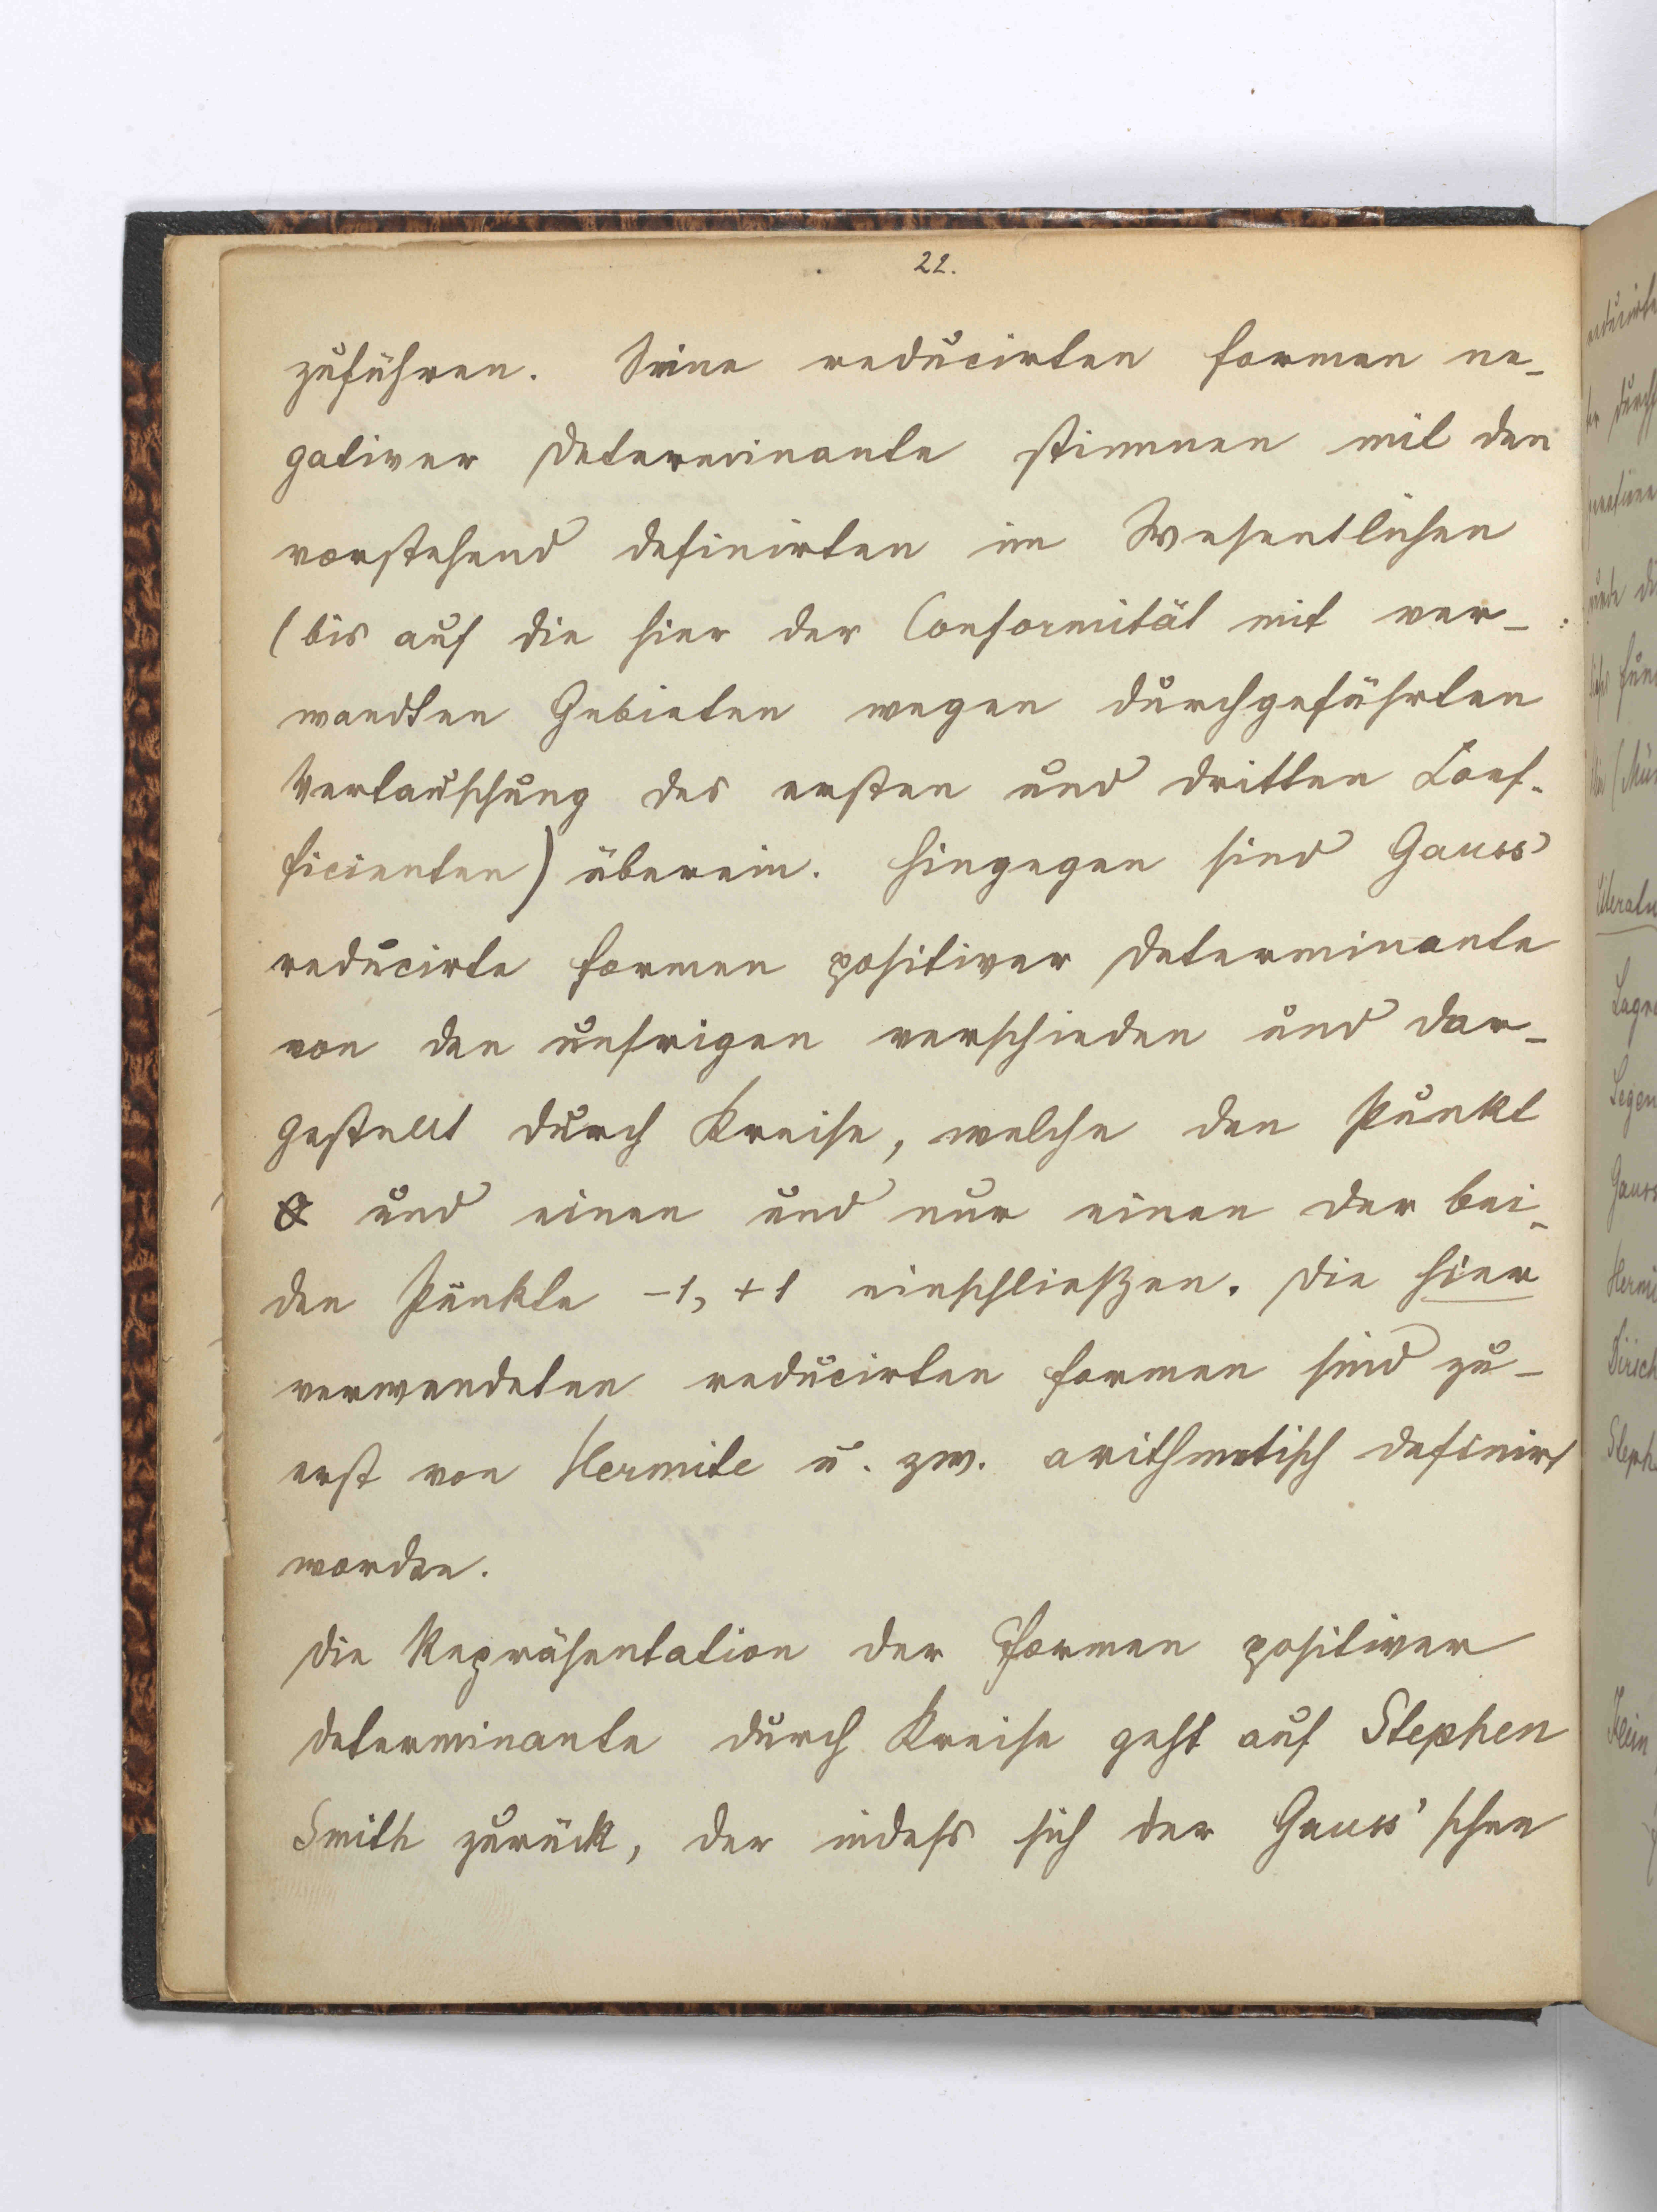 22.
zuführen. Seine reducirten Formen ne-
gativer Determinante stimmen mit den
vorstehend definirten im Wesentlichen
(bis auf die hier der Conformität mit ver-
wandten Gebieten wegen durchgeführten
Vertauschung des ersten und dritten Coef-
ficienten) überein. Hingegen sind Gauss'
reducirte Formen positiver Determinante
von den unsrigen verschieden und dar-
gestellt durch Kreise, welche den Punkt
und einen und nur einen der bei-
den Punkte -1, +1 einschließen. Die hier
verwendeten reducirten Formen sind zu-
erst von Hermite u. zw. arithmetisch definirt
worden.
Die Repräsentation der Formen positiver
Determinante durch Kreise geht auf Stephen
Smith zurück, der indess sich der Gauss'schen
Literatu
Lagr
Legen
Gauss
Hermi
Dirich
Steph
Klein